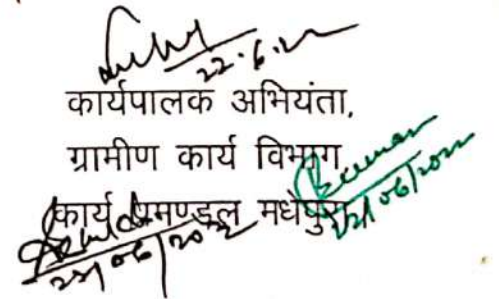 22.6.22
कार्यपालक अभियंता,
ग्रामीण कार्य विभाग
कार्य प्रमण्डल मधेपुरा
22/06/2022
22/06/2022